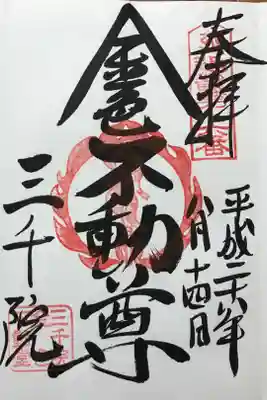 奉拝
平成二十六年
八月十四日
金色不動尊
三千院